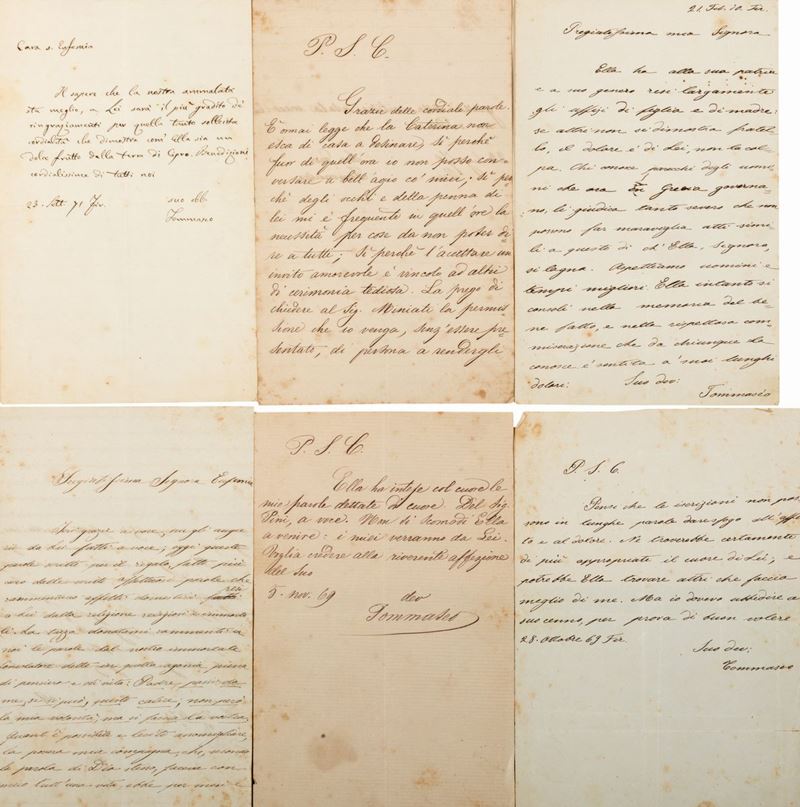 Cara s. Eufemia
Il sapere che la nostra ammalata
sta meglio, a Lei sarà il più gradito de'
ringraziamenti per quella tanto sollecita
cordialità che dimostra com' ella sia un
delic frutto della terra di Capo. Benedizioni
cordialissime di tutti noi
23. Sett 71 Fir. suo obb.
Tommaseo
P. S. C.
Grazie delle cordiale parole.
È omai legge che la Caterina non
esca di casa a desinare; sì perchè
fuor di quell'ora io non posso con-
versare a bell'agio co' miei; sì per
chè degli occhi e della penna di
lei mi è frequente in quell'ore la
necessità per cose da non poter di
re a tutti; sì perchè l'accettare un
invito amorevole è vincolo ad altri
di cerimonia tediosa. La prego di
chiedere al Sig. Miniati la permis-
sione che io venga, senz'essere pre
sentato, di persona a rendergli
21. Feb. 70. Fir.
Pregiatissima mia Signora
Ella ha alla sua patria
e a suo genero resi largamente
gli uffizj di figlia e di madre:
se altri non si dimostra fratel-
lo, il dolore è di Lei, non la col-
pa. Chi conosce parecchi degli uomi-
ni che ora in Grecia governa-
no, li giudica tanto severo che non
possono far maraviglia atti simi-
li a questo di ch' Ella, Signora,
si lagna. Aspettiamo uomini e
tempi migliori. Ella intanto si
consoli nella memoria del be-
ne fatto, e nella rispettosa com-
miserazione che da chiunque la
conosce è sentita a' suoi lunghi
dolori. Suo dev:
Tommaseo
Pregiatissima Signora Eufemia
grazie a voce, agli augu
rii da Lei fatti a voce; oggi queste
parole scritte per il regalo, fatto più
caro dalle scritte affettuose parole che
rammentano affetti domestici resi
a Lei dalla religione
La tazza donatami rammenta a
noi le parole del nostro immortale
Consolatore dette in quella agonia, piena
di pensiero e di vita: Padre, passi da
me, se si può, questo calice, non però
la mia volontà, ma si faccia la vostra.
Quant' è possibile e lecito assomigliare,
la povera mia compagna, che,
la parola di Dio stesso, faccia con
meco tutt'una vita, ebbe per
P. S. C.
Ella ha intese col cuore le
mie parole dettate di cuore. Del Sig.
Pini, a voce. Non si scomodi Ella
a venire: i miei verranno da Lei.
Voglia credere alla riverente affezione
del suo
5. nov. 69 dev
Tommaseo
P. S. C.
Pensi che le iscrizioni non pos
sono in lunghe parole dare sfogo all'affet-
to e al dolore. Ne troverebbe certamente
di più appropriate il cuore di Lei; e
potrebbe Ella trovare altri che faccia
meglio di me. Ma io dovevo ubbidire a
suo cenno, per prova di buon volere
28. Ottobre 69 Fir.
Suo dev:
Tommaseo